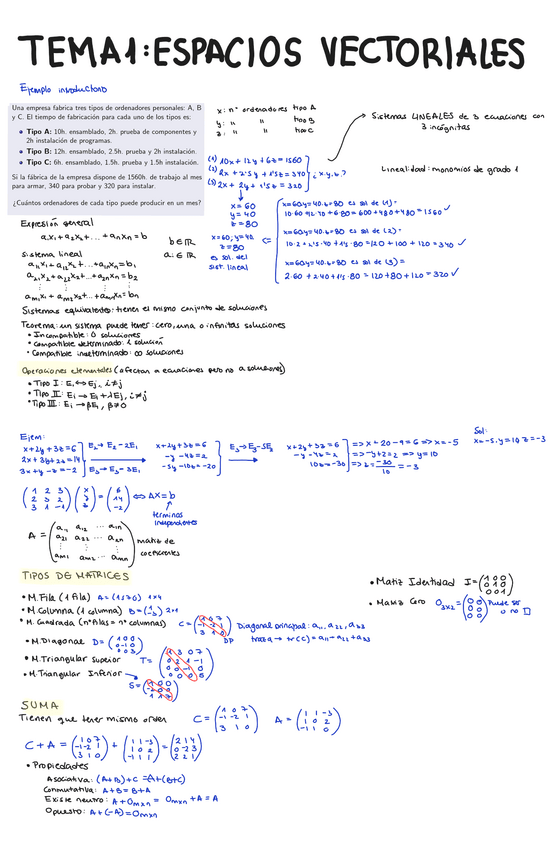 TEMA1: ESPACIOS VECTORIALES
Ejemplo introductorio
Una empresa fabrica tres tipos de ordenadores personales: A, B
y C. El tiempo de fabricación para cada uno de los tipos es:
Tipo A: 10h. ensamblado, 2h. prueba de componentes y
2h instalación de programas.
Tipo B: 12h. ensamblado, 2.5h. prueba y 2h instalación.
Tipo C: 6h. ensamblado, 1.5h. prueba y 1.5h instalación.
Si la fábrica de la empresa dispone de 1560h. de trabajo al mes
para armar, 340 para probar y 320 para instalar.
¿Cuántos ordenadores de cada tipo puede producir en un mes?
x: nº ordenadores tipo A
y: " " tipo B
z: " " tipo C
Sistemas LINEALES de 3 ecuaciones con
3 incógnitas
Linealidad: monomios de grado 1
(1) 10x + 12y + 6z = 1560
(2) 2x + 2'5y + 1'5z = 340 ¿x,y,z?
(3) 2x + 2y + 1'5z = 320
x = 60
y = 40
z = 80
x=60, y=40
z=80
es sol. del
sist. lineal
x=60 y=40 z=80 es sol de (1) =
10·60+12·40+6·80 = 600+480+480 = 1560 ✓
x=60 y=40 z=80 es sol de (2) =
10·2+2'5·40+1'5·80 = 120+100+120 = 340 ✓
x=60 y=40 z=80 es sol de (3) =
2·60+2·40+1'5·80 = 120+80+120 = 320 ✓
Expresión general
a₁x₁ + a₂x₂ + ... + aₙxₙ = b
b ∈ ℝ
aᵢ ∈ ℝ
Sistema lineal
a₁₁x₁ + a₁₂x₂ + ... + a₁ₙxₙ = b₁
a₂₁x₁ + a₂₂x₂ + ... + a₂ₙxₙ = b₂
aₘ₁x₁ + aₘ₂x₂ + ... + aₘₙxₙ = bₙ
Sistemas equivalentes: tienen el mismo conjunto de soluciones
Teorema: un sistema puede tener: cero, una o infinitas soluciones
• Incompatible: 0 soluciones
• Compatible determinado: 1 solución
• Compatible indeterminado: ∞ soluciones
Operaciones elementales (afectan a ecuaciones pero no a soluciones)
• Tipo I: Eᵢ ↔ Eⱼ, i≠j
• Tipo II: Eᵢ → Eᵢ + λEⱼ, i≠j
• Tipo III: Eᵢ → βEᵢ, β≠0
Ejem:
x+2y+3z=6
2x+3y+2z=14
3x+y-z=-2
E₂ → E₂ - 2E₁
E₃ → E₃ - 3E₁
x+2y+3z=6
-y-4z=2
-5y-10z=-20
E₃ → E₃-5E₂
x+2y+3z=6 => x = 20-9=6 => x=-5
-y-4z=2 => -y+2=2 => y=10
10z=-30 => z = -30/10 = -3
Sol:
x=-5, y=10 z=-3
(1 2 3; 2 3 2; 3 1 -1) (x; y; z) = (6; 14; -2) ⇔ AX=b
términos
independientes
A = (a₁₁ a₁₂ ... a₁ₙ; a₂₁ a₂₂ ... a₂ₙ; aₘ₁ aₘ₂ ... aₘₙ) matriz de
coeficientes
TIPOS DE MATRICES
• M. Fila (1 fila) A = (1 5 7 0) 1x4
• M. Columna (1 columna) B = (1; -3) 2x1
• M. Cuadrada (nº filas = nº columnas) C = (1 0 7; -1 -2 1; 3 1 0)
DP
Diagonal principal: a₁₁, a₂₂, a₃₃
traza → tr(C) = a₁₁ - a₂₂ + a₃₃
• M. Diagonal D = (1 0 0; 0 -1 0; 0 0 3)
• M. Triangular Superior T = (1 3 0 7; 0 2 1 -1; 0 0 -1 0; 0 0 0 5)
• M. Triangular Inferior
• Matriz Identidad I = (1 0 0; 0 1 0; 0 0 1)
• Matriz Cero O₃ₓ₂ = (0 0; 0 0; 0 0) Puede ser
o no □
SUMA
Tienen que tener mismo orden C = (1 0 7; -1 -2 1; 3 1 0) A = (1 1 -3; 1 0 2; -1 1 0)
C + A = (1 0 7; -1 -2 1; 3 1 0) + (1 1 -3; 1 0 2; -1 1 1) = (2 1 4; 0 -2 3; 2 2 1)
• Propiedades
Asociativa: (A+B)+C = A+(B+C)
Conmutativa: A+B = B+A
Existe neutro: A + Oₘₓₙ = Oₘₓₙ + A = A
Opuesto: A + (-A) = Oₘₓₙ